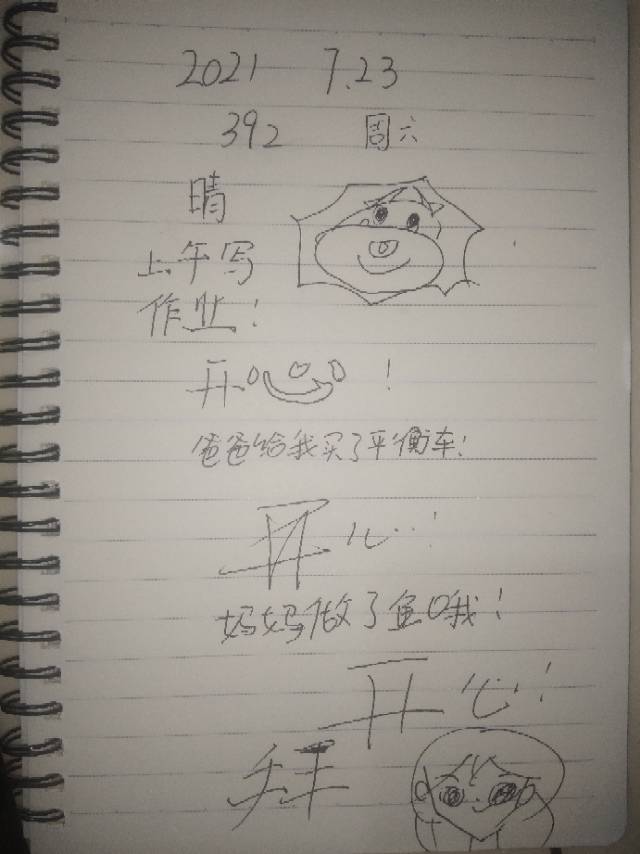 2021 7.23
392 周六
晴
上午写
作业!
开心!
爸爸给我买了平衡车!
开心!
妈妈做了鱼哦!
开心!
拜